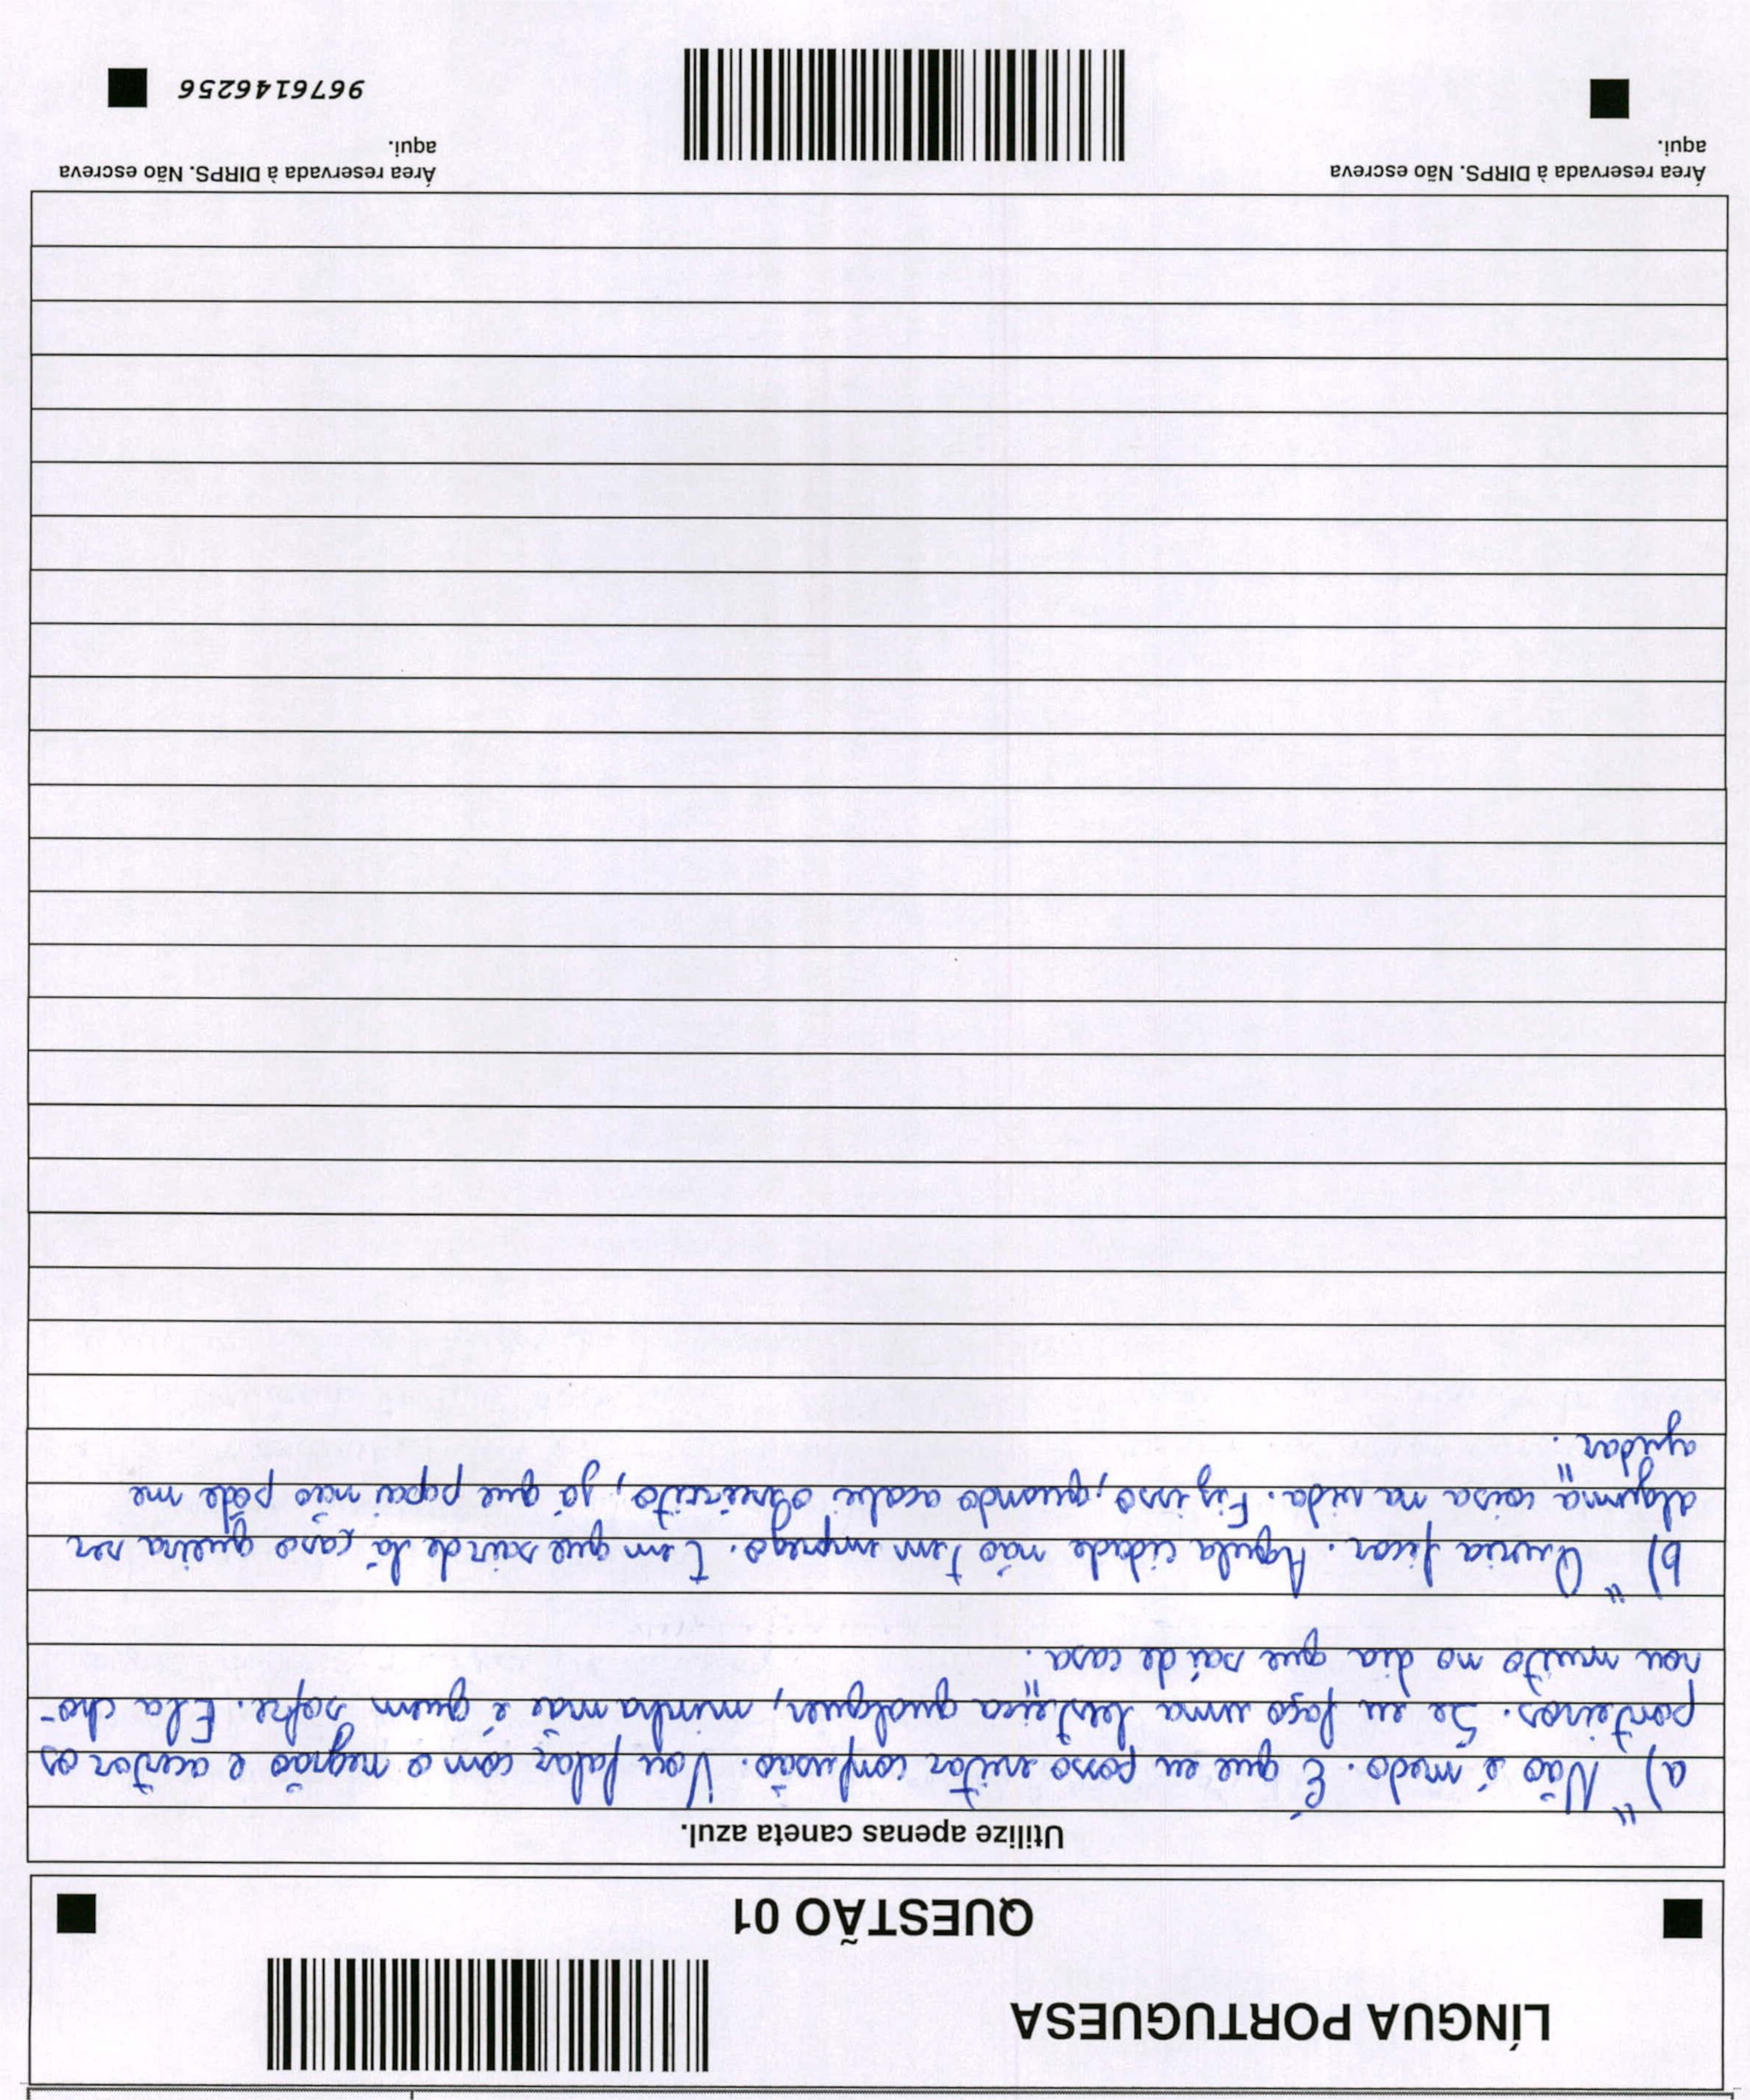 LÍNGUA PORTUGUESA
QUESTÃO 01
Utilize apenas caneta azul.
a) "Não é medo. É que eu posso evitar confusão. Vou falar com o negrão e acertar os
ponteiros. Se eu faço uma besteira qualquer, minha mãe é quem sofre. Ela cho-
rou muito no dia que saí de casa".
b) "Queria ficar. Aquela cidade não tem emprego. Tem que sair de lá caso queira ser
alguma coisa na vida. Fiz isso, quando acabei o exército, já que papai não pôde me
ajudar".
Área reservada à DIRPS. Não escreva
aqui.
Área reservada à DIRPS. Não escreva
aqui.
9676146256